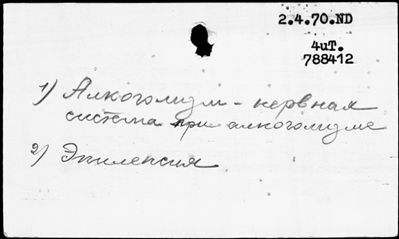 2.4.70.ND
4иТ.
788412
1) Алкоголизм - нервная
система при алкоголизме
2) Эпилепсия